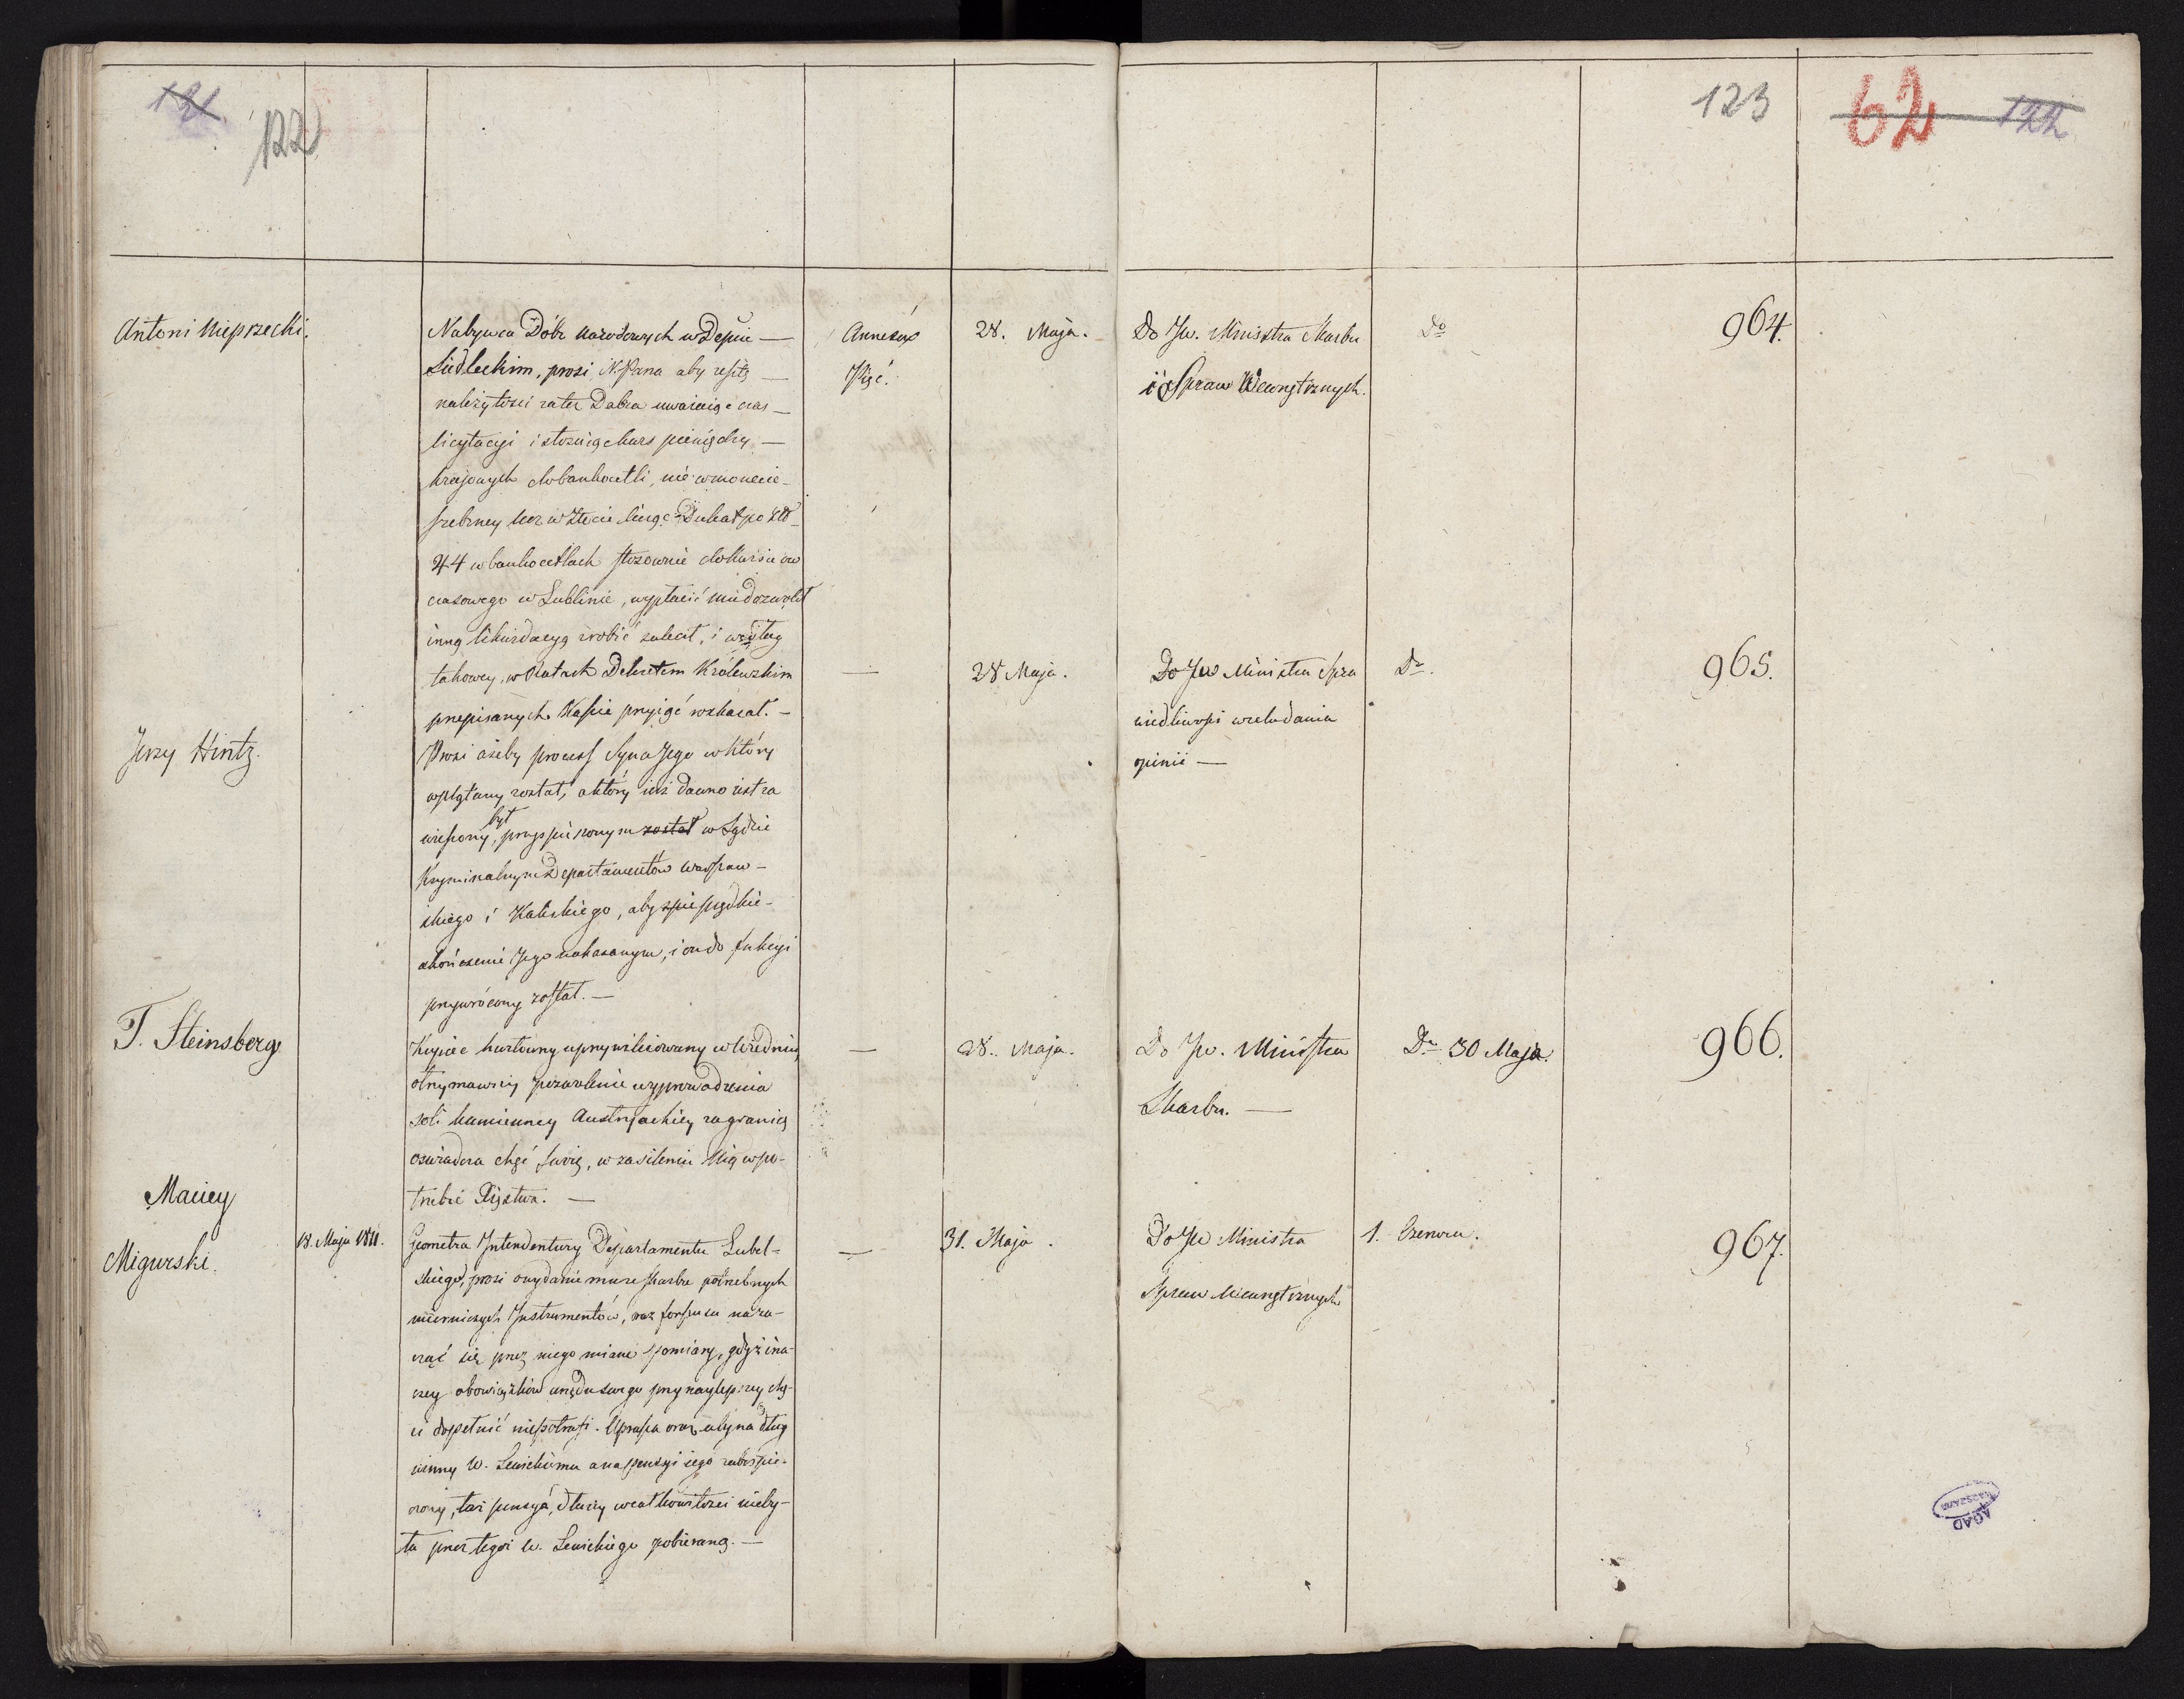 121.
122
123
62
122
Antoni Nieprzecki.
Nabywca Dóbr narodowych w Depcie —
Siedleckim, prosi N. Pana aby resztę —
należytości za też Dobra uważaiąc czas —
licytacyi i stosuiąc kurs pieniędzy —
kraiowych do bankocetli, nie w monecie
srebrney lecz w złocie licząc Dukat po Złł
44 w bankocetlach stosownie do kursu ow
czasowego w Lublinie, wypłacić mu dozwolił
inną likwidacyą zrobić zalecił, i
takowey, w Ratach Dekretem Królewskim
przepisanych Kassie przyiąć rozkazał. —
Annexów
Pięć.
28. Maja.
Do JW. Ministra Skarbu
i Spraw Wewnętrznych.
Do
964.
Jerzy Hintz.
Prosi ażeby process Syna Jego w który
wplątany został, a który iuż dawno iest za
wieszony, był przyspieszonym został w Sądzie
Kryminalnym Departamentów Warszaw-
skiego i Kaliskiego, aby
ukończenie Jego nakazanym, i on do funkcyi
przywrócony został. —
—
28 Maja.
Do JW Ministra Spra
wiedliwości względem
opinii —
Do.
965.
T. Steinsberg
Kupiec hurtowny uprzywileiowany w Wiedniu,
otrzymawszy pozwolenie wyprowadzenia
soli kamienney Austryackiey za granicę
oświadcza chęć swoię, w zasileniu Nią w po-
trzebie Xięstwa. —
—
28. Maja.
Do JW. Ministra
Skarbu. —
Do 30 Maja.
966.
Maciey
Migurski.
18. Maja 1811.
Geometra Intendentury Departamentu Lubel-
skiego, prosi o wydanie mu ze skarbu potrzebnych
mierniczych Instrumentów, oraz forszusu na za-
cząć się przez niego miane pomiary, gdyż ina-
czey obowiązków urzędu swego przy naylepszey chę-
ci dopełnić niepotrafi. Uprasza oraz, aby na dług
winny W. Lewickiemu a na pensyi iego zabespie-
czony, taż pensya, dłużey w całkowitości nieby-
ła przez tegoż W. Lewickiego pobieraną. —
—
31. Maja.
Do JW Ministra
Spraw Wewnętrznych
1. Czerwca.
967.
AGAD
WARSZAWA